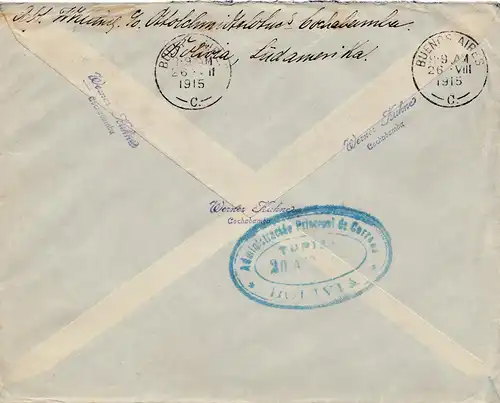 Cochabamba.
Bolivia, Südamerika.
BUENOS AIRES
9 AM
26 VIII
1915
C.
BUENOS AIRES
9 AM
26 VIII
1915
C.
Werner Kuhne
Cochabamba
Werner Kuhne
Cochabamba
Werner Kuhne
Cochabamba
Administración Principal de Correos
TUPIZA
20
BOLIVIA